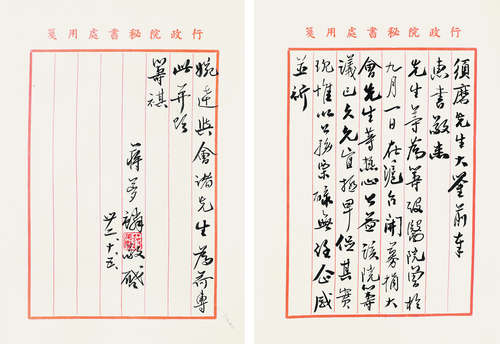 行政院秘書處用箋
須磨先生大鑒前奉
惠書敬悉
先生等為籌設醫院曾於
九月一日在滬召開募捐大
會先生等熱心公益該院籌
議已久允宜極早促其實
現惟以公務栗碌無任企感
並祈
行政院秘書處用箋
婉達與會諸先生為荷專
此并頌
籌祺
蔣夢麟敬啟